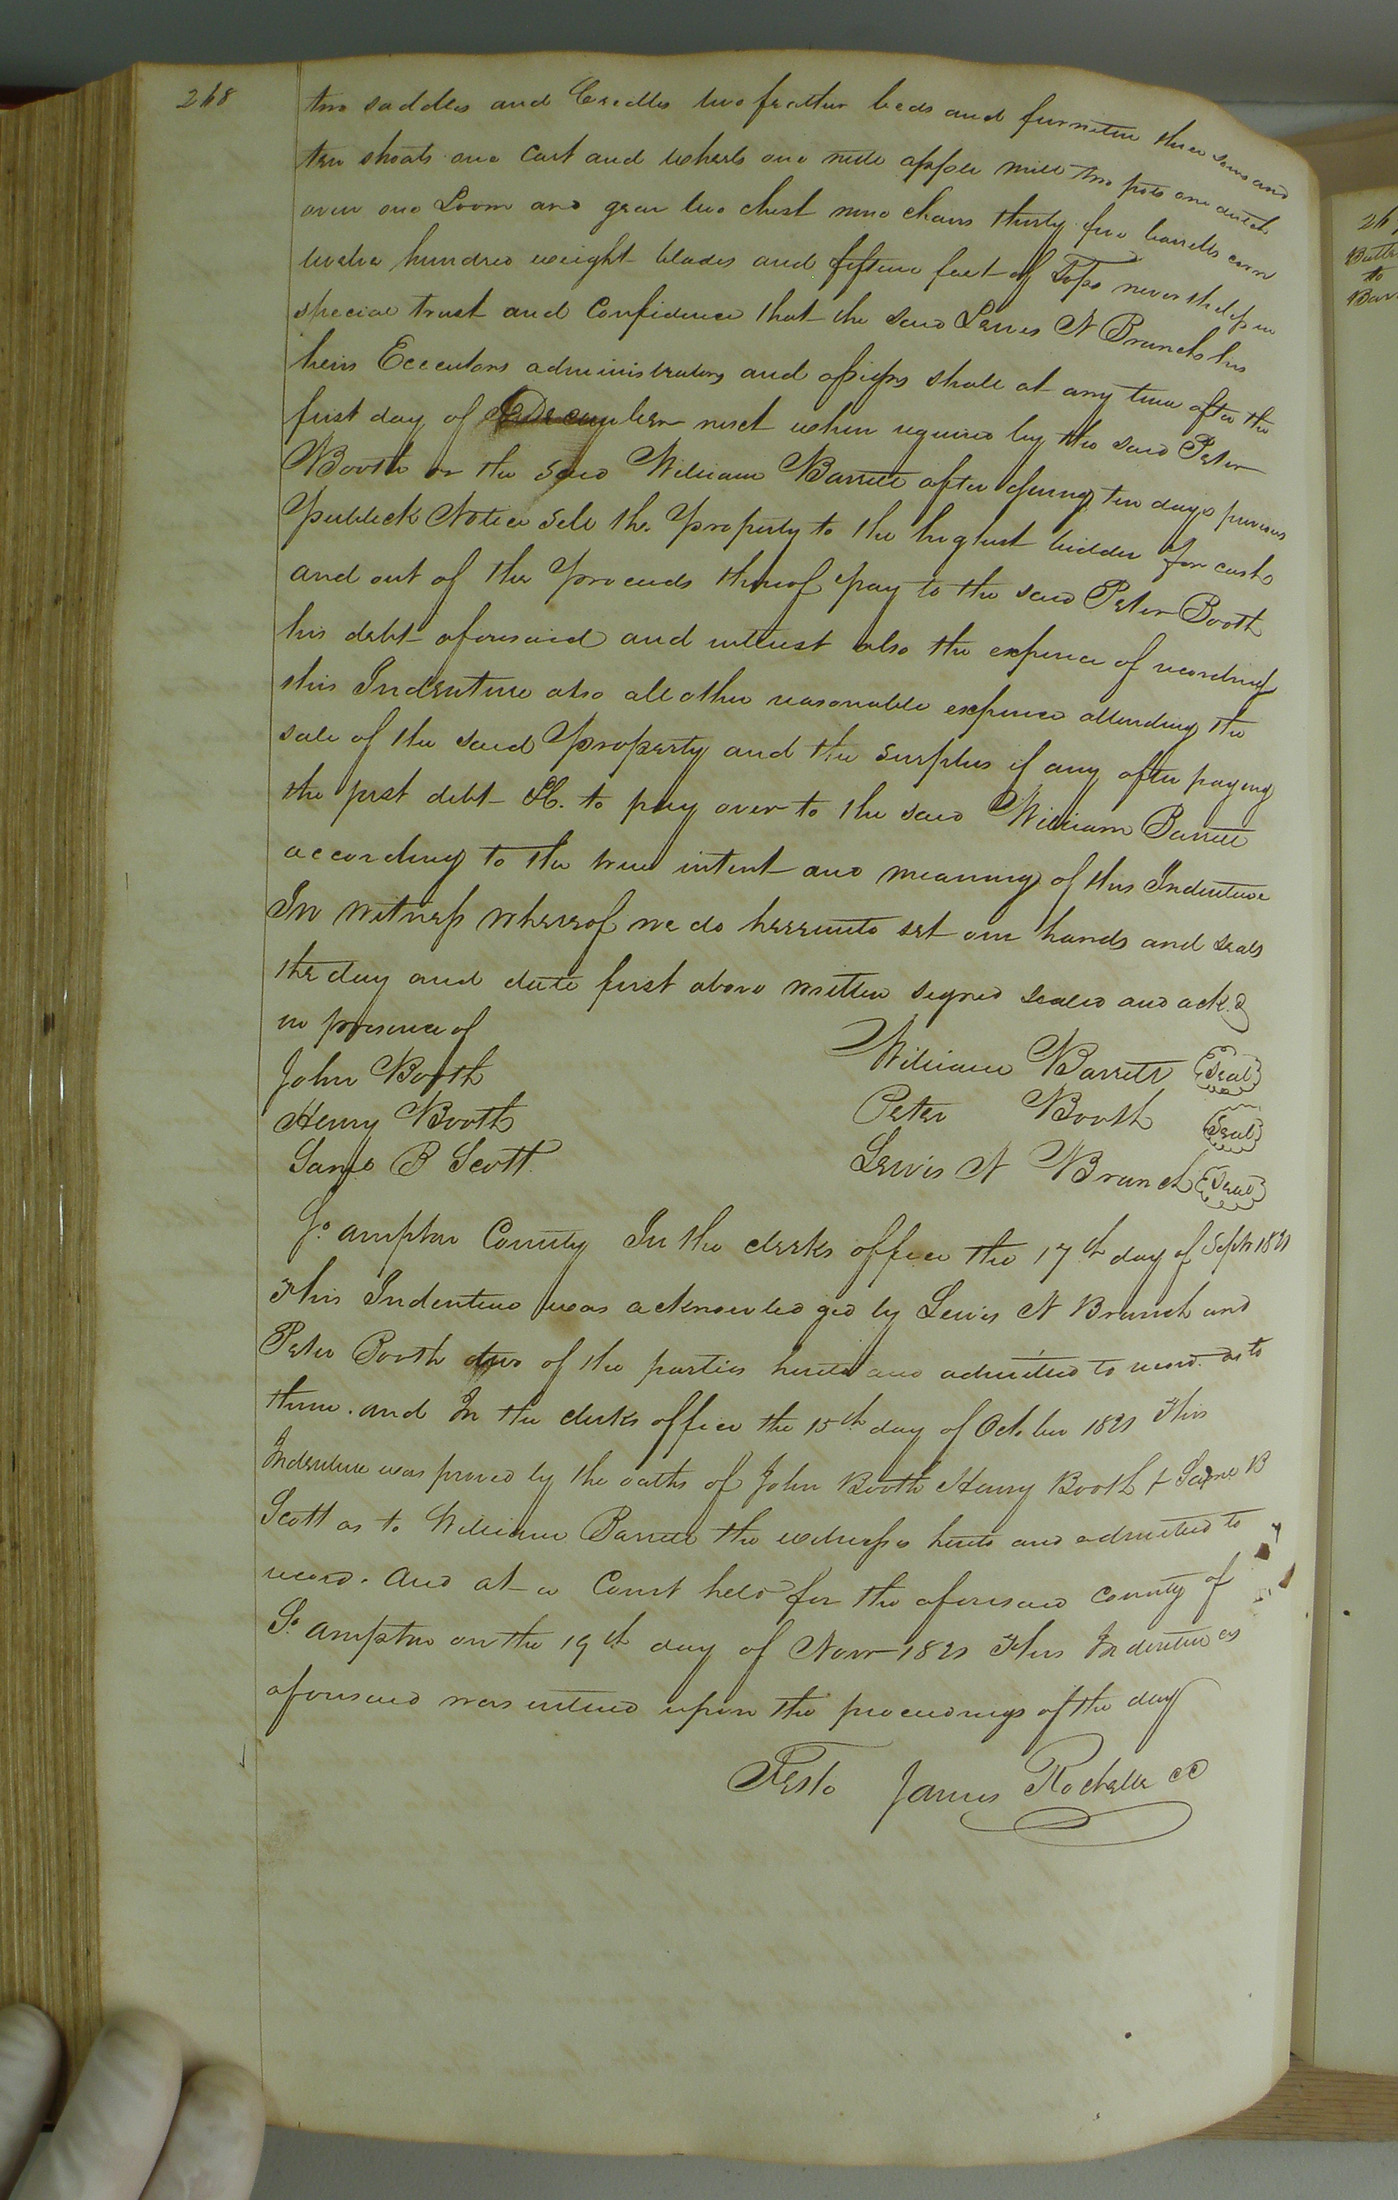 268
two saddles and Bridles two feather beds and furniture three sows and
ten shoats one Cart and wheels one nutt apple mill two pots one dutch
oven one Loom and gear two chest nine chairs thirty five barrells corn
twelve hundred weight blades and fifteen feet of Tops nevertheless in
special trust and Confidence that the said Lewis N Branch his
heirs Executors administrators and assigns shall at any time after the
first day of December next when required by the said Peter
Booth or the said William Barrett after giving ten days previous
Publick Notice sell the Property to the highest bidder for cash
and out of the Proceeds thereof pay to the said Peter Booth
his debt aforesaid and interest also the expence of recording
this Indenture also all other reasonable expence attending the
sale of the said Property and the surplus if any after paying
the just debt &c. to pay over to the said William Barrett
according to the true intent and meaning of this Indenture
In witness whereof we do hereunto set our hands and seals
the day and date first above written signed sealed and ackd
in presence of
John Booth
Henry Booth
B Scott
William Barrett Seal
Peter Booth Seal
Lewis N Branch Seal
So. ampton County In the clerks office the 17th day of Septr 1821
This Indenture was acknowledged by Lewis N Branch and
Peter Booth two of the parties hereto and admitted to record as to
them. and In the clerks office the 15th day of October 1821 This
Indenture was proved by the oaths of John Booth Henry Booth & B
Scott as to William Barrett the witnesses hereto and admitted to
record. And at a Court held for the aforesaid County of
So. ampton on the 19th day of Novr 1821 This Indenture as
aforesaid was entered upon the proceedings of the day
Teste James Rochelle CC
26
Butt
to
Bar